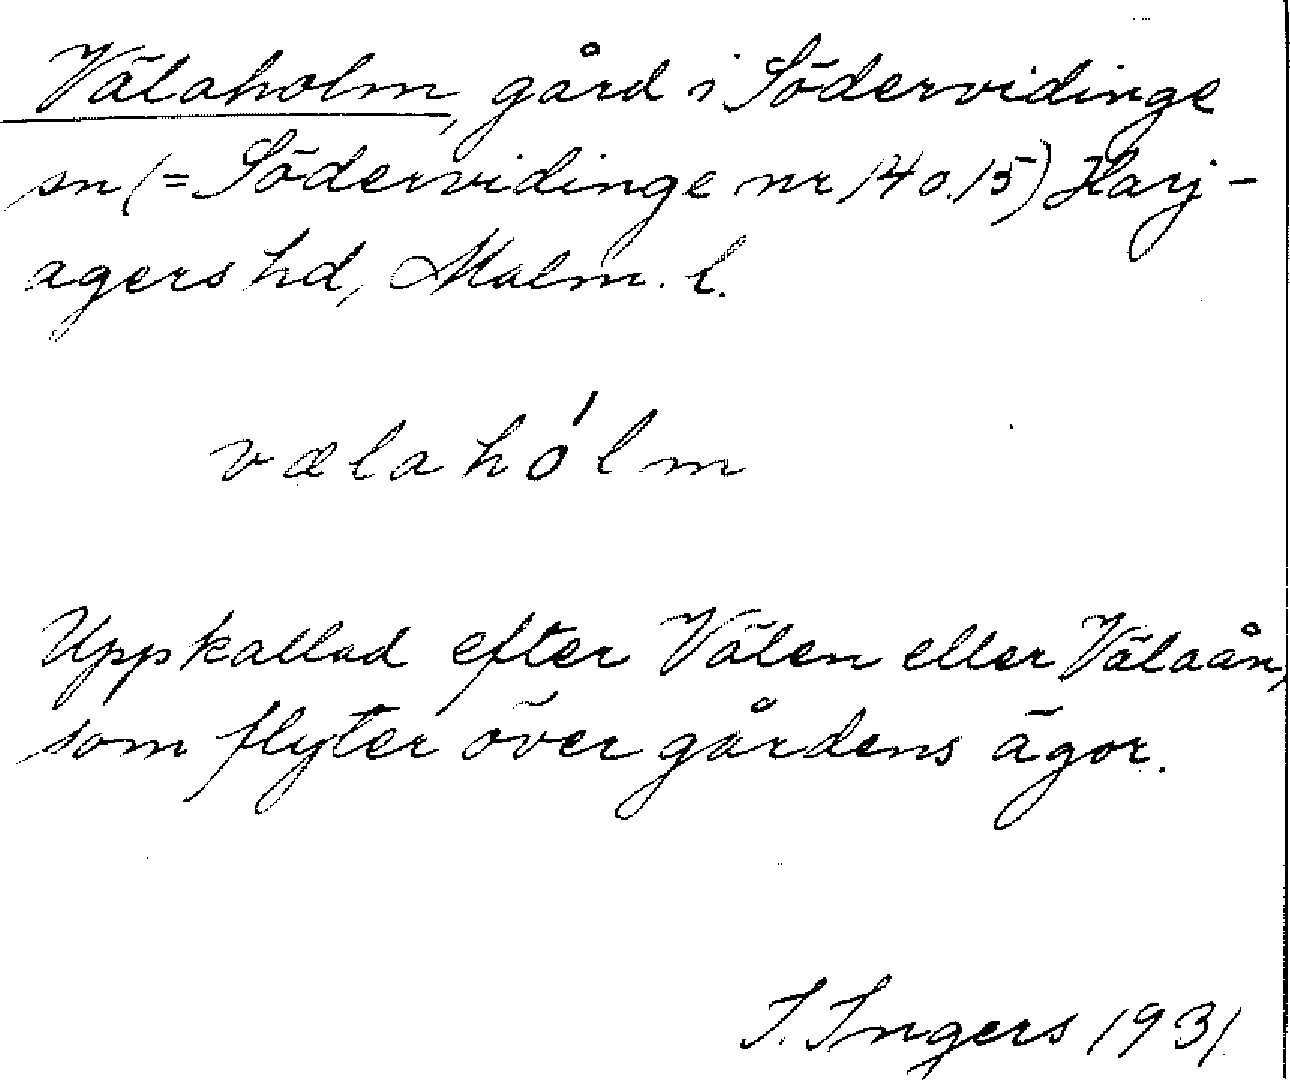 Välaholm, gård i Södervidinge
sn (= Södervidinge nr 14 o. 15) Harj-
agers hd, Malm. l.
vælahólm
Uppkallad efter Välen eller Välaån,
som flyter över gårdens ägor.
I. Ingers 1931